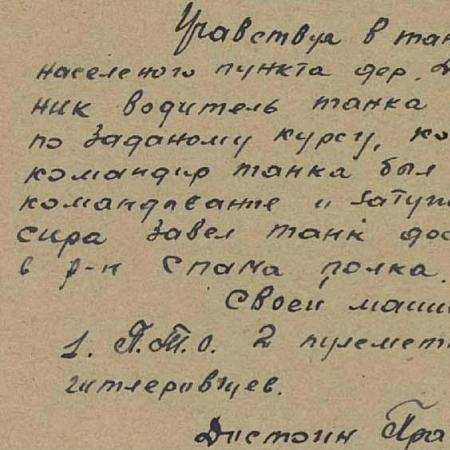 Учавствуя в тан
населеного пункта дер.
ник водитель танка
по заданому курсу, ко
командир танка был
командование и затуш
сира завел танк дос
в р-н спама полка.
Своей маши
1. П.Т.О. 2 пулемет
гитлеровцев.
Достоин Пра